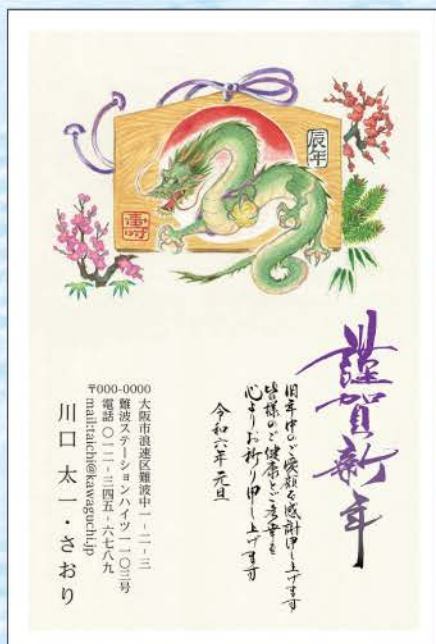 辰年
壽
謹賀新年
旧年中のご愛顧を感謝申し上げます
皆様のご健康とご多幸を
心よりお祈り申し上げます
令和六年元旦
〒000-0000
大阪市浪速区難波中一-二-三
難波ステーションハイツ一一〇三号
電話 〇一二-三四五-六七八九
mail:taichi@kawaguchi.jp
川口 太一・さおり